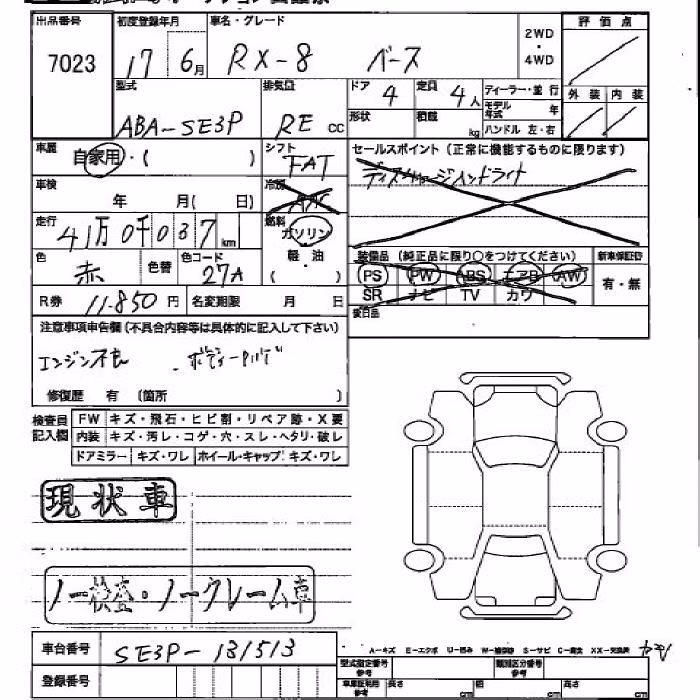 出品番号 初度登録年月 車名・グレード 2WD・4WD 評価点
7023 17 6月 RX-8 ベース
型式 排気量 ドア 定員 ディーラー・並行 外装 内装
4 4人 モデル年式 年
ABA-SE3P RE cc 形状 積載 kg ハンドル 左・右
車歴 自家用・( ) シフト FAT セールスポイント (正常に機能するものに限ります)
車検 年 月( 日) 冷房 ディスチャージヘッドライト
走行 41万0千037km 燃料 ガソリン
軽・油
( )
色 赤 色替 色コード 27A 装備品 (純正品に限り○をつけてください) 新車保証書
PS PW ABS エアB AW 有・無
SR ナビ TV カワ
R券 11.850円 名変期限 月 日 後日品
注意事項申告欄 (不具合内容等は具体的に記入して下さい)
エンジン不良
修復歴 有 (箇所 )
検査員記入欄 FW キズ・飛石・ヒビ割・リペア跡・X要
内装 キズ・汚レ・コゲ・穴・スレ・ヘタリ・破レ
ドアミラー キズ・ワレ ホイール・キャップ キズ・ワレ
現状車
ノー検査・ノークレーム車
車台番号 SE3P-131513
A-キズ E-エクボ U-凹み W-補修跡 S-サビ C-腐食 XX-交換済
登録番号 型式指定番号 参考 類別区分番号 参考
車庫証明用 参考 長さ cm 幅 cm 高さ cm